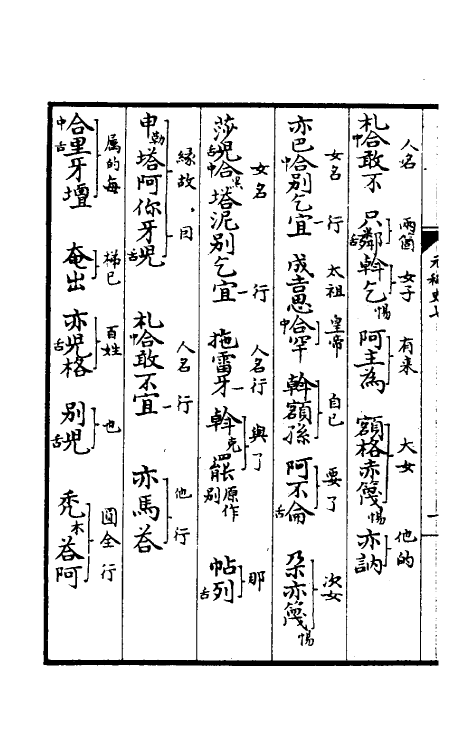 人名 兩箇 女子 有來 大女 他的
札中合敢不 只舌鄰 斡乞惕 阿主為 額格赤篾惕 亦訥
女名 行 太祖 皇帝 自己 要了 次女
亦巴中合別乞宜 成吉思中合罕 斡額孫 阿不舌侖 朶亦篾惕
女名 行 人名 行 與了 那
莎舌兒中合黑塔泥別乞宜 拖雷牙 斡克罷原作別 帖舌列
緣故 因 人名 行 他 行
申勒塔阿你牙舌兒 札中合敢不宜 亦馬荅
屬的每 梯己 百姓 也 圓全 行
中合舌里牙壇 奄出 亦舌兒格 別舌兒 禿木荅阿